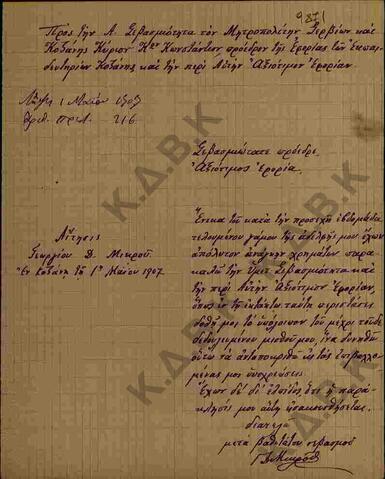 987
Πρὸς τὴν Α. Σεβασμιότητα τὸν Μητροπολίτην Σερβίων καὶ
Κοζάνης Κύριον Κον Κωνστάντιον πρόεδρον τῆς Ἐφορίας τῶν Ἐκπαι-
δευτηρίων Κοζάνης καὶ τὴν περὶ Αὐτὴν Ἀξιότιμον Ἐφορίαν.
1 Μαΐου 1907
Ἀριθ. Πρωτ. 216
Σεβασμιώτατε πρόεδρε,
Ἀξιότιμος Ἐφορία.
Αἴτησις
Γεωργίου Δ. Μικροῦ
Ἐν Κοζάνῃ τῇ 1ῃ Μαΐου 1907
Ἕνεκα τοῦ κατὰ τὴν προσεχῆ ἑβδομάδα
τελουμένου γάμου τῆς ἀδελφῆς μου ἔχων
ἀπόλυτον ἀνάγκην χρημάτων παρα-
καλῶ τὴν Ὑμετ. Σεβασμιότητα καὶ
τὴν περὶ Αὐτὴν Ἀξιότιμον Ἐφορίαν,
ὅπως ἐν τῇ ἐκτάκτῳ ταύτῃ περιστάσει
δοθῇ μοι τὸ ὑπόλοιπον τοῦ μέχρι τοῦδε
δεδουλευμένου μισθοῦ μου, ἵνα δυνηθῶ
οὕτω νὰ ἀνταποκριθῶ εἰς τὰς ἐπιβαλλο-
μένας μοι ὑποχρεώσεις.
Ἔχων δὲ δι' ἐλπίδος, ὅτι ἡ παρά-
κλησίς μου αὕτη εἰσακουσθήσεται,
διατελῶ
μετὰ βαθυτάτου σεβασμοῦ
Γ. Δ. Μικρός
Κ.Δ.Β.Κ